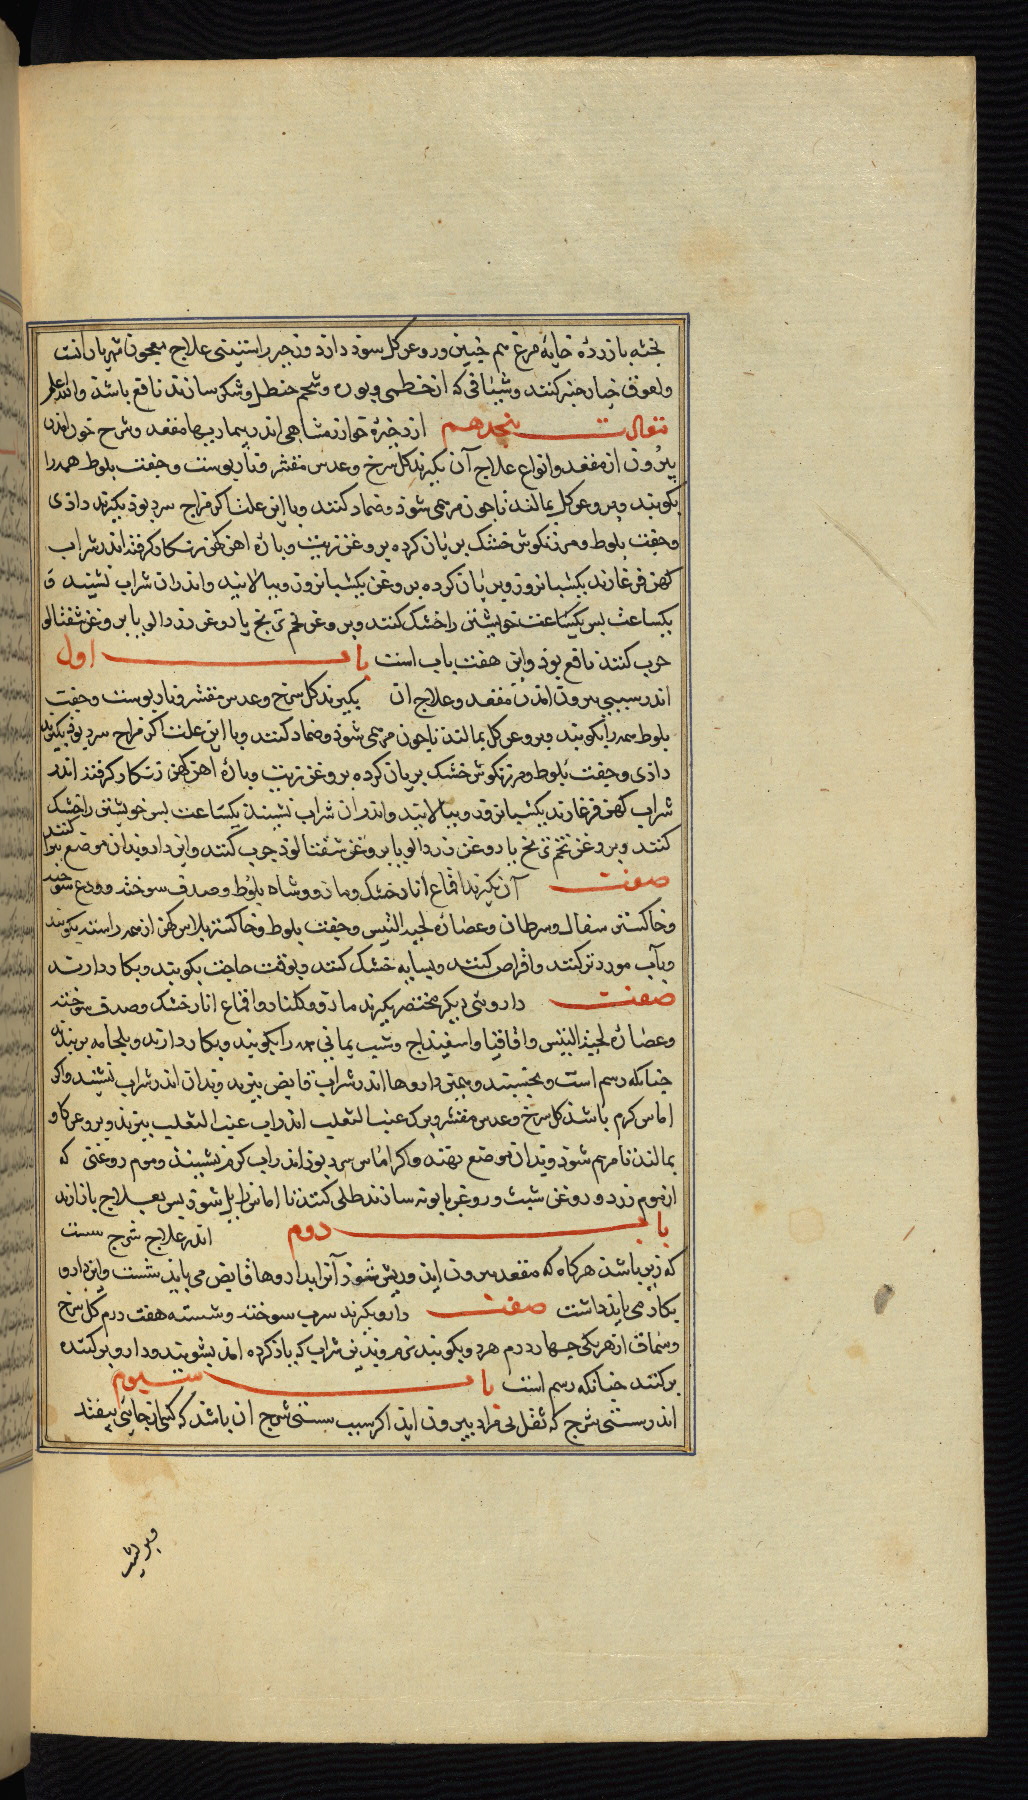 پخته با زرده خایه مرغ هم چنین و روغن گل سود دارد و زحیر راستینی علاج معجون شهریاران است
و لعوق خیارچنبر کنند و شیافی که از خطمی و بوره و شحم حنظل و شکر سازند نافع باشد والله اعلم
مقالت پنجدهم از ذخیره خوارزمشاهی اندر بیماریها مقعد و شرح خون آمدن
بیرون از مقعد و انواع علاج آن بگیرند گل سرخ و عدس مقشر و نار پوست و جفت بلوط همه را
بکوبند و بروغن گل بمالند تا چون مرهمی شود و ضماد کنند و با این علت اگر مزاج سرد بود بگیرند داذی
و جفت بلوط و مرزنگوش خشک بریان کرده بروغن زیت و پاره آهن کهن زنگار گرفته اندر شراب
کهن فرغارند یکشبانروز و بریان کرده بروغن یکشبانروز و بپالایند و اندران شراب نشیند و
یکساعت پس یکساعت خویشتن را خشک کنند و بروغن تخم ترنج یا روغن زردالو یا بروغن شفتالو
چرب کنند نافع بود و این هفت باب است باب اول
اندر سبب بیرون آمدن مقعد و علاج آن بگیرند گل سرخ و عدس مقشر و نار پوست و جفت
بلوط همه را بکوبند و بروغن گل بمالند تا چون مرهمی شود و ضماد کنند و با این علت اگر مزاج سرد بود بگیرند
داذی و جفت بلوط و مرزنگوش خشک بریان کرده بروغن زیت و پاره آهن کهن زنگار گرفته اندر
شراب کهن فرغارند یکشبانروز و بپالایند و اندران شراب نشیند یکساعت پس خویشتن را خشک
کنند و بروغن تخم ترنج یا روغن زردالو یا بروغن شفتالو چرب کنند و این دارو بدان موضع
صفت آن بگیرند اقماع انار خشک و مازو و شاه بلوط و صدف سوخته و ودع سوخته
و خاکستر سفال و سرطان و عصاره لحیة التیس و جفت بلوط و خاکستر پلاس کهن از همه راستند بکوبند
و بآب مورد تر کنند و اقراص کنند و بسایه خشک کنند و بوقت حاجت بکوبند و بکار دارند
صفت داروئی دیگر مختصر بگیرند مازو و گلنار و اقماع انار خشک و صدف سوخته
و عصاره لحیة التیس و اقاقیا و اسفیداج و شب یمانی همه را بکوبند و بکار دارند و بلجامه بربندند
چنانکه رسم است و بخسبند و همین داروها اندر شراب قابض بپزند و بدان اندر شراب نشیند و اگر
آماس گرم باشد گل سرخ و عدس مقشر و برگ عنب الثعلب اندر آب عنب الثعلب بپزند و بروغن گاو
بمالند تا مرهم شود و بدان موضع نهند و اگر آماس سرد بود اندر آب گرم نشینند و موم روغنی که
از موم زرد و روغن شبت و روغن بابونه سازند طلی کنند تا آماس زایل شود پس بعلاج بازآیند
باب دوم اندر علاج شرج سست
که زیر باشد هر گاه که مقعد بیرون آید و ریش شود آنرا بداروها قابض می باید شست و این دارو
بکار می باید داشت صفت دارو بگیرند سرب سوخته و شسته هفت درم گل سرخ
و سماق از هر یکی چهار درم هر دو بکوبند نرم و بدین شراب که یاد کرده آمد بشویند و دارو پراکنده
برکنند چنانکه رسم است باب سیوم
اندر سستی شرج که ثفل بی مراد بیرون آید اگر سبب سستی شرج آن باشد که کسی از جایی بیفتد
و بر پشت